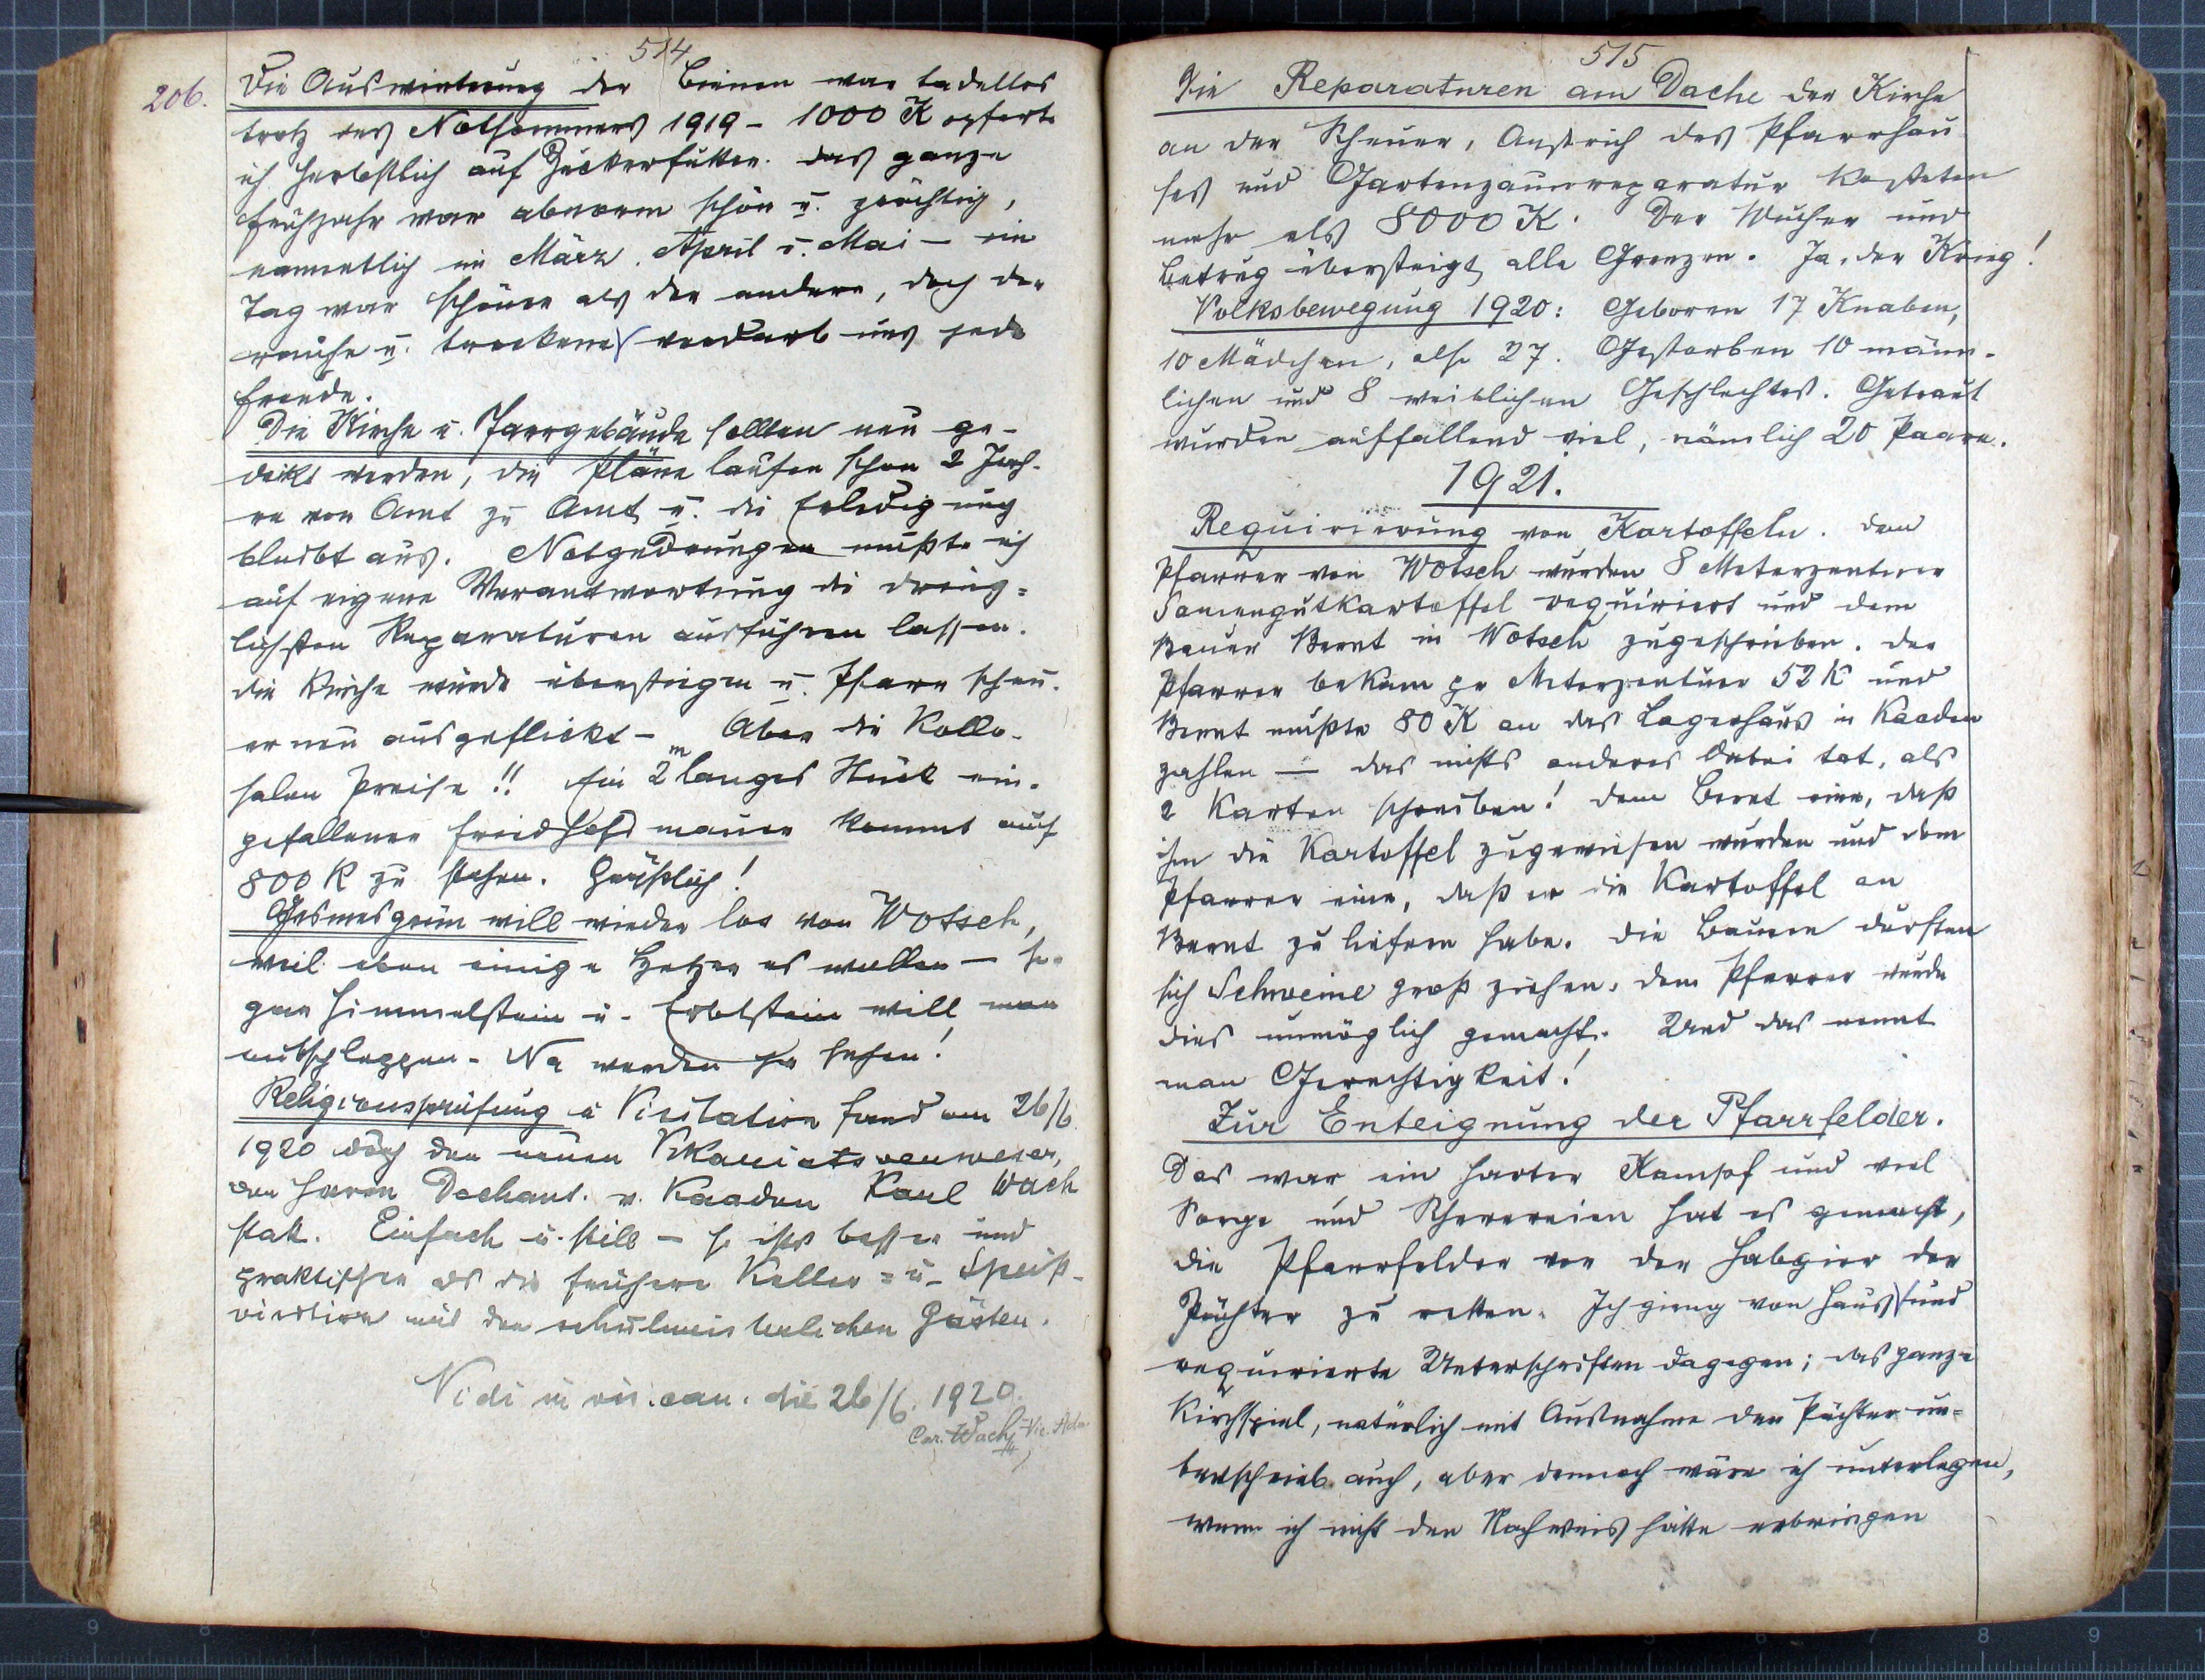 514
206.
Die Auswinterung der Bienen war tadellos
trotz des Notsommers 1919 – 1000 K opferte
ich herbstlich auf Zuckerfutter. Das ganze
Frühjahr war abnorm schön u. prächtig,
namentlich im März, April u. Mai – ein
Tag war schöner als der andere, doch der
rauhe u. trockene verdarb uns jede
Freude.
Die Kirche u. Farrgebäude sollten neu ge-
deckt werden, die Pläne laufen schon 2 Jah-
re von Amt zu Amt u. die Erledigung
bleibt aus. Notgedrungen mußte ich
auf eigene Verantwortung die dring-
lichsten Reparaturen ausführen lassen.
Die Kirche wurde überstiegen u. Pfarrscheu-
er neu ausgeflickt – Aber die kollo-
salen Preise!! Ein 2 m langes Stück ein-
gefallener Friedhofsmauer kommt auf
800 K zu stehen. Gräßlich!
Gesmesgrün will wieder los von Wotsch,
weil eben einige Hetzer es wollen – so-
gar Himmelstein u. Erbelstein will man
mitschleppen – Na werden ja sehen!
Religionsprüfung u Visitation fand am 26/6.
1920 durch den neuen Vikariatsverweser,
den Herrn Dechant v. Kaaden Karl Wach
statt. Einfach u. still – so ists besser und
praktischer als die frühere Keller- u- Speiß-
visitation mit den schulmeisterlichen Gästen.
Vidi in vis. can. die 26/6. 1920.
Car. Wach Vic. Adm.
515
Die Reparaturen am Dache der Kirche
an der Scheuer, Anstrich des Pfarrhau
ses und Gartenzaunreparatur kosteten
mehr als 8000 K. Der Wucher und
Betrug übersteigt alle Grenzen. Ja, der Krieg!
Volksbewegung 1920: Geboren 17 Knaben,
10 Mädchen, also 27. Gestorben 10 männ-
lichen und 8 weiblichen Geschlechtes. Getraut
wurden auffallend viel, nämlich 20 Paare.
1921.
Requirierung von Kartoffeln. Dem
Pfarrer von Wotsch wurden 8 Meterzentner
Samengutkartoffel requiriert und dem
Bauer Bernt in Wotsch zugeschrieben. Der
Pfarrer bekam per Meterzentner 52 K und
Bernt mußte 80 K an das Lagerhaus in Kaaden
zahlen — das nichts anderes dabei tat, als
2 Karten schreiben! Dem Bernt eine, daß
ihm die Kartoffel zugewiesen wurden und dem
Pfarrer eine, daß er die Kartoffel an
Bernt zu liefern habe. Die Bauern durften
sich Schweine groß ziehen, dem Pfarrer wurde
dies unmöglich gemacht. Und das nennt
man Gerechtigkeit!
Zur Enteignung der Pfarrfelder.
Das war ein harter Kampf und viel
Sorge und Scherereien hat es gemacht,
die Pfarrfelder von der Habgier der
Pächter zu retten. Ich gieng von Haus und
requirierte Unterschriften dagegen; das ganze
Kirchspiel, natürlich mit Ausnahme der Pächter un-
terschrieb auch, aber dennoch wäre ich unterlegen,
wenn ich nicht den Nachweis hätte erbringen